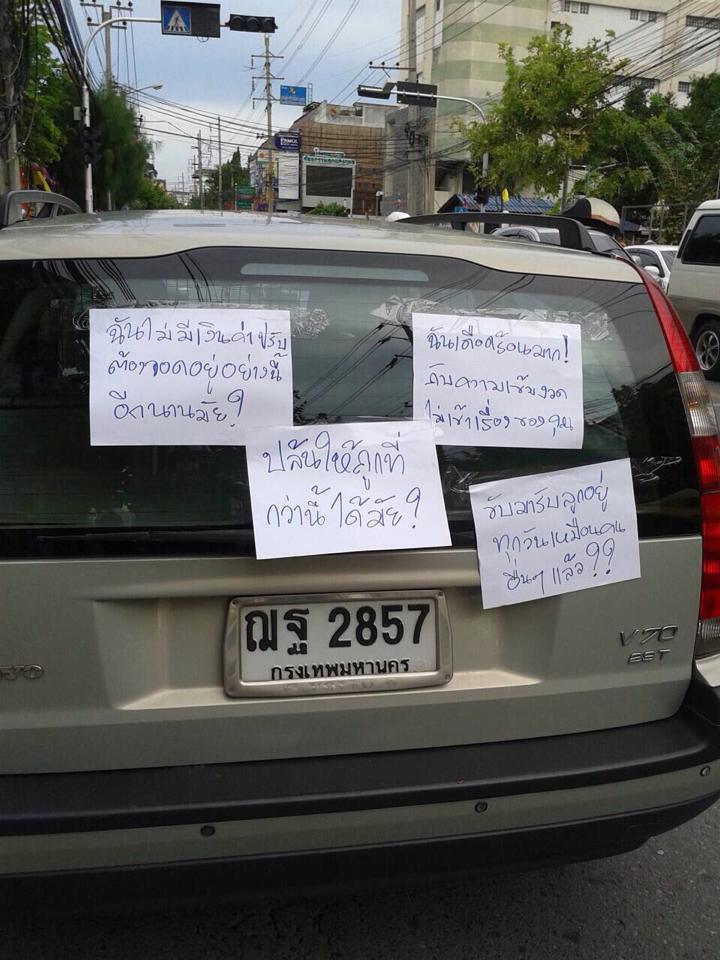 ฉันไม่มีเงินค่าปรับ
ต้องจอดอยู่อย่างนี้
อีกนานมัย?
ฉันเดือดร้อนมาก!
กับความเข้มงวด
ไม่เข้าเรื่องของคุณ
ปล้นให้ถูกที่
กว่านี้ได้มัย?
ขับมารับลูกอยู่
ทุกวันเหมือนคน
อื่นๆ แล้ว??
ฌฐ 2857
กรุงเทพมหานคร
V70